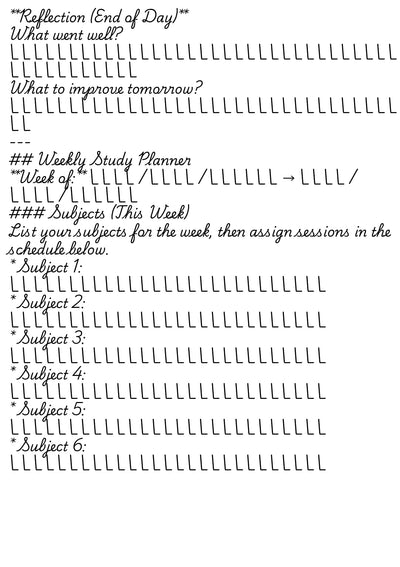 **Reflection (End of Day)**
What went well?
\_\_\_\_\_\_\_\_\_\_\_\_\_\_\_\_\_\_\_\_\_\_\_\_\_\_\_\_\_\_\_\_\_
\_\_\_\_\_\_\_\_\_\_\_
What to improve tomorrow?
\_\_\_\_\_\_\_\_\_\_\_\_\_\_\_\_\_\_\_\_\_\_\_\_\_\_\_\_\_\_\_\_\_
\_\_
---
## Weekly Study Planner
**Week of:** \_\_\_\_/\_\_\_\_/\_\_\_\_\_\_ → \_\_\_\_/
\_\_\_\_/\_\_\_\_\_\_
### Subjects (This Week)
List your subjects for the week, then assign sessions in the
schedule below.
* Subject 1:
\_\_\_\_\_\_\_\_\_\_\_\_\_\_\_\_\_\_\_\_\_\_\_\_\_\_\_
* Subject 2:
\_\_\_\_\_\_\_\_\_\_\_\_\_\_\_\_\_\_\_\_\_\_\_\_\_\_\_
* Subject 3:
\_\_\_\_\_\_\_\_\_\_\_\_\_\_\_\_\_\_\_\_\_\_\_\_\_\_\_
* Subject 4:
\_\_\_\_\_\_\_\_\_\_\_\_\_\_\_\_\_\_\_\_\_\_\_\_\_\_\_
* Subject 5:
\_\_\_\_\_\_\_\_\_\_\_\_\_\_\_\_\_\_\_\_\_\_\_\_\_\_\_
* Subject 6:
\_\_\_\_\_\_\_\_\_\_\_\_\_\_\_\_\_\_\_\_\_\_\_\_\_\_\_